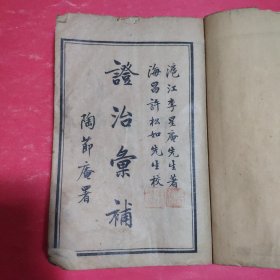 滬江李星庵先生著
海昌許松如先生校
證治彙補
陶節庵署